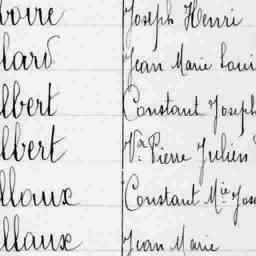 boire Joseph Henri
lard Jean Marie Loui
lbert Constant Joseph
lbert Vr Pierre Julien
llaux Constant Mie Jose
llaux Jean Marie